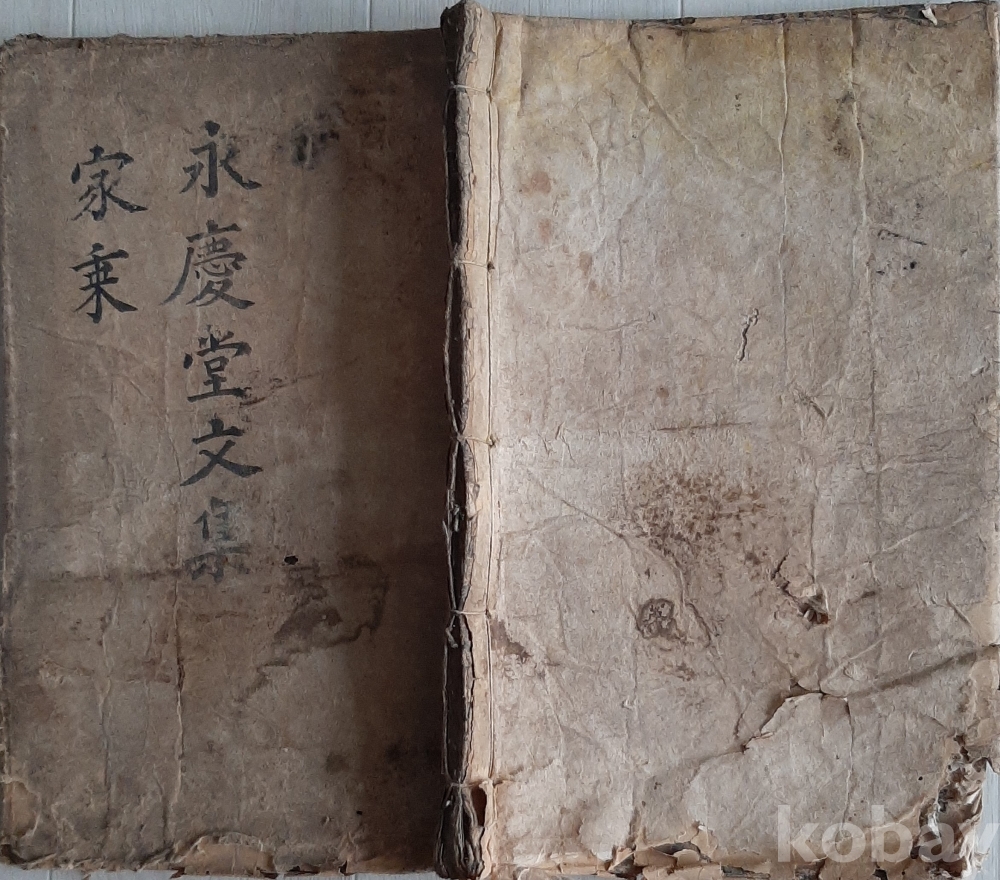 永慶堂文集
家乗
kobay